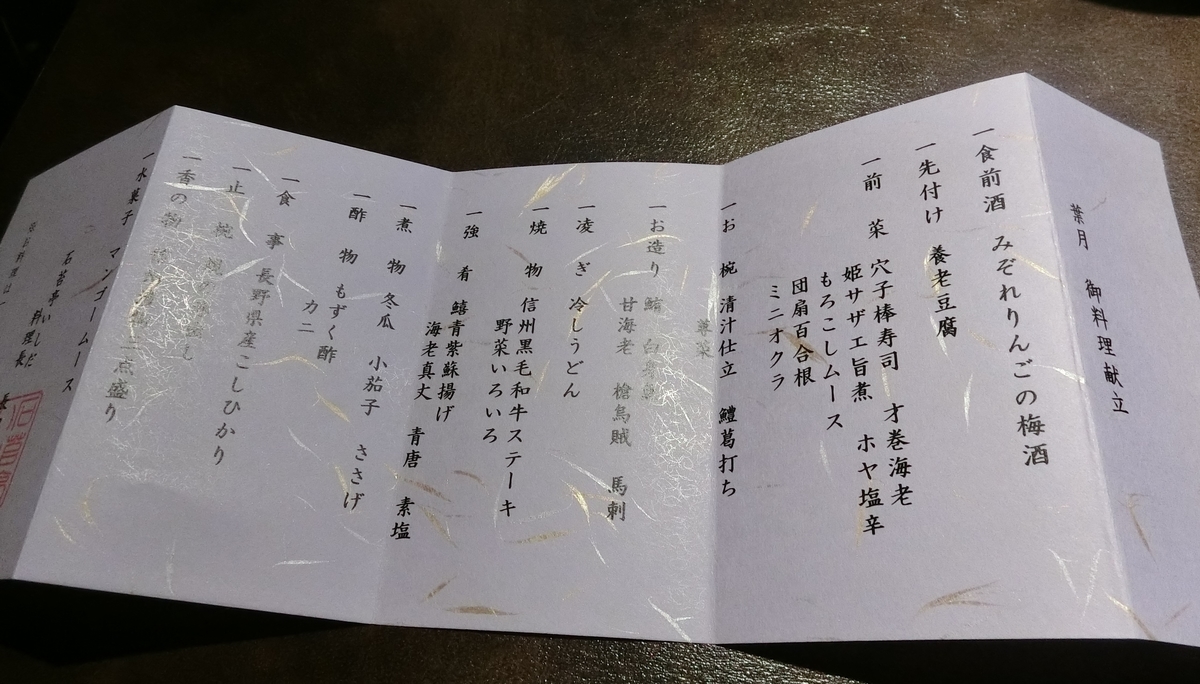 葉月 御料理献立
一食前酒 みぞれりんごの梅酒
一先付け 養老豆腐
一前 菜 穴子棒寿司 才巻海老
姫サザエ旨煮 ホヤ塩辛
もろこしムース
団扇百合根
ミニオクラ
一お 椀 清汁仕立 鱧葛打ち
蓴菜
一お造り 鮪
甘海老 槍烏賊 馬刺
一凌 ぎ 冷しうどん
一焼 物 信州黒毛和牛ステーキ
野菜いろいろ
一強 肴 鱚青紫蘇揚げ
海老真丈 青唐 素塩
一煮 物 冬瓜 小茄子 ささげ
一酢 物 もずく酢
カニ
一食 事 長野県産こしひかり
一止 椀
一香の物 二点盛り
一水菓子 マンゴームース
石苔亭いしだ
料理長